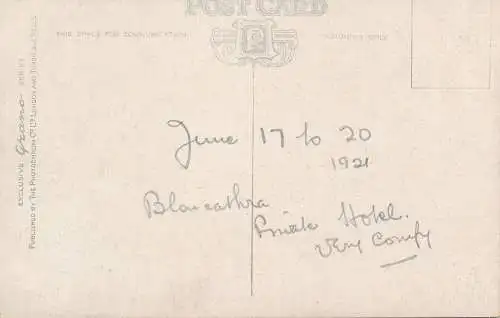 POST CARD
THIS SPACE FOR COMMUNICATION
ADDRESS ONLY.
EXCLUSIVE Grano SERIES
PUBLISHED BY THE PHOTOCHROM CO. LTD. LONDON AND TUNBRIDGE WELLS
June 17 to 20
1921
Blancathra
Private Hotel.
Very Comfy